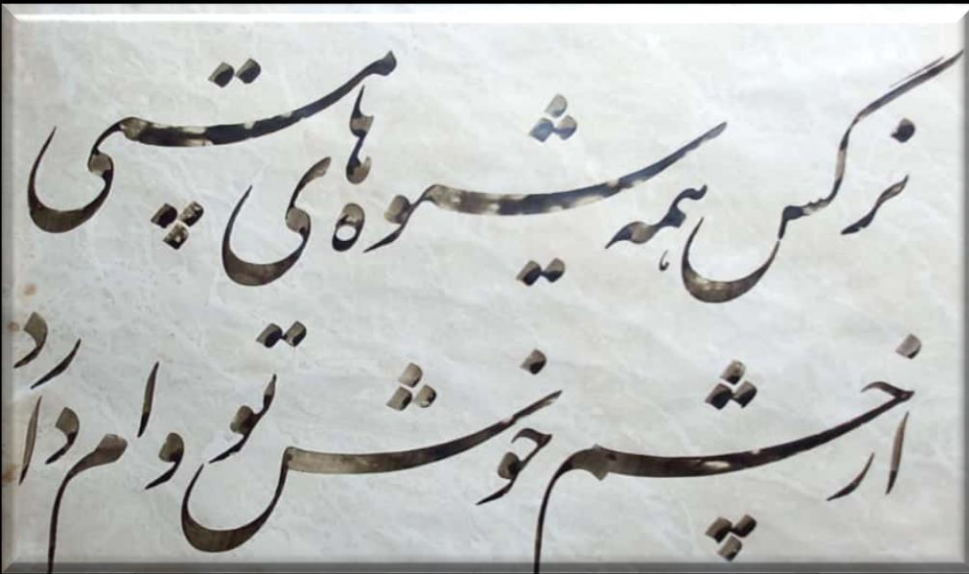 نرگس همه شیوه‌های مستی
از چشم خوشت تو وام دارد